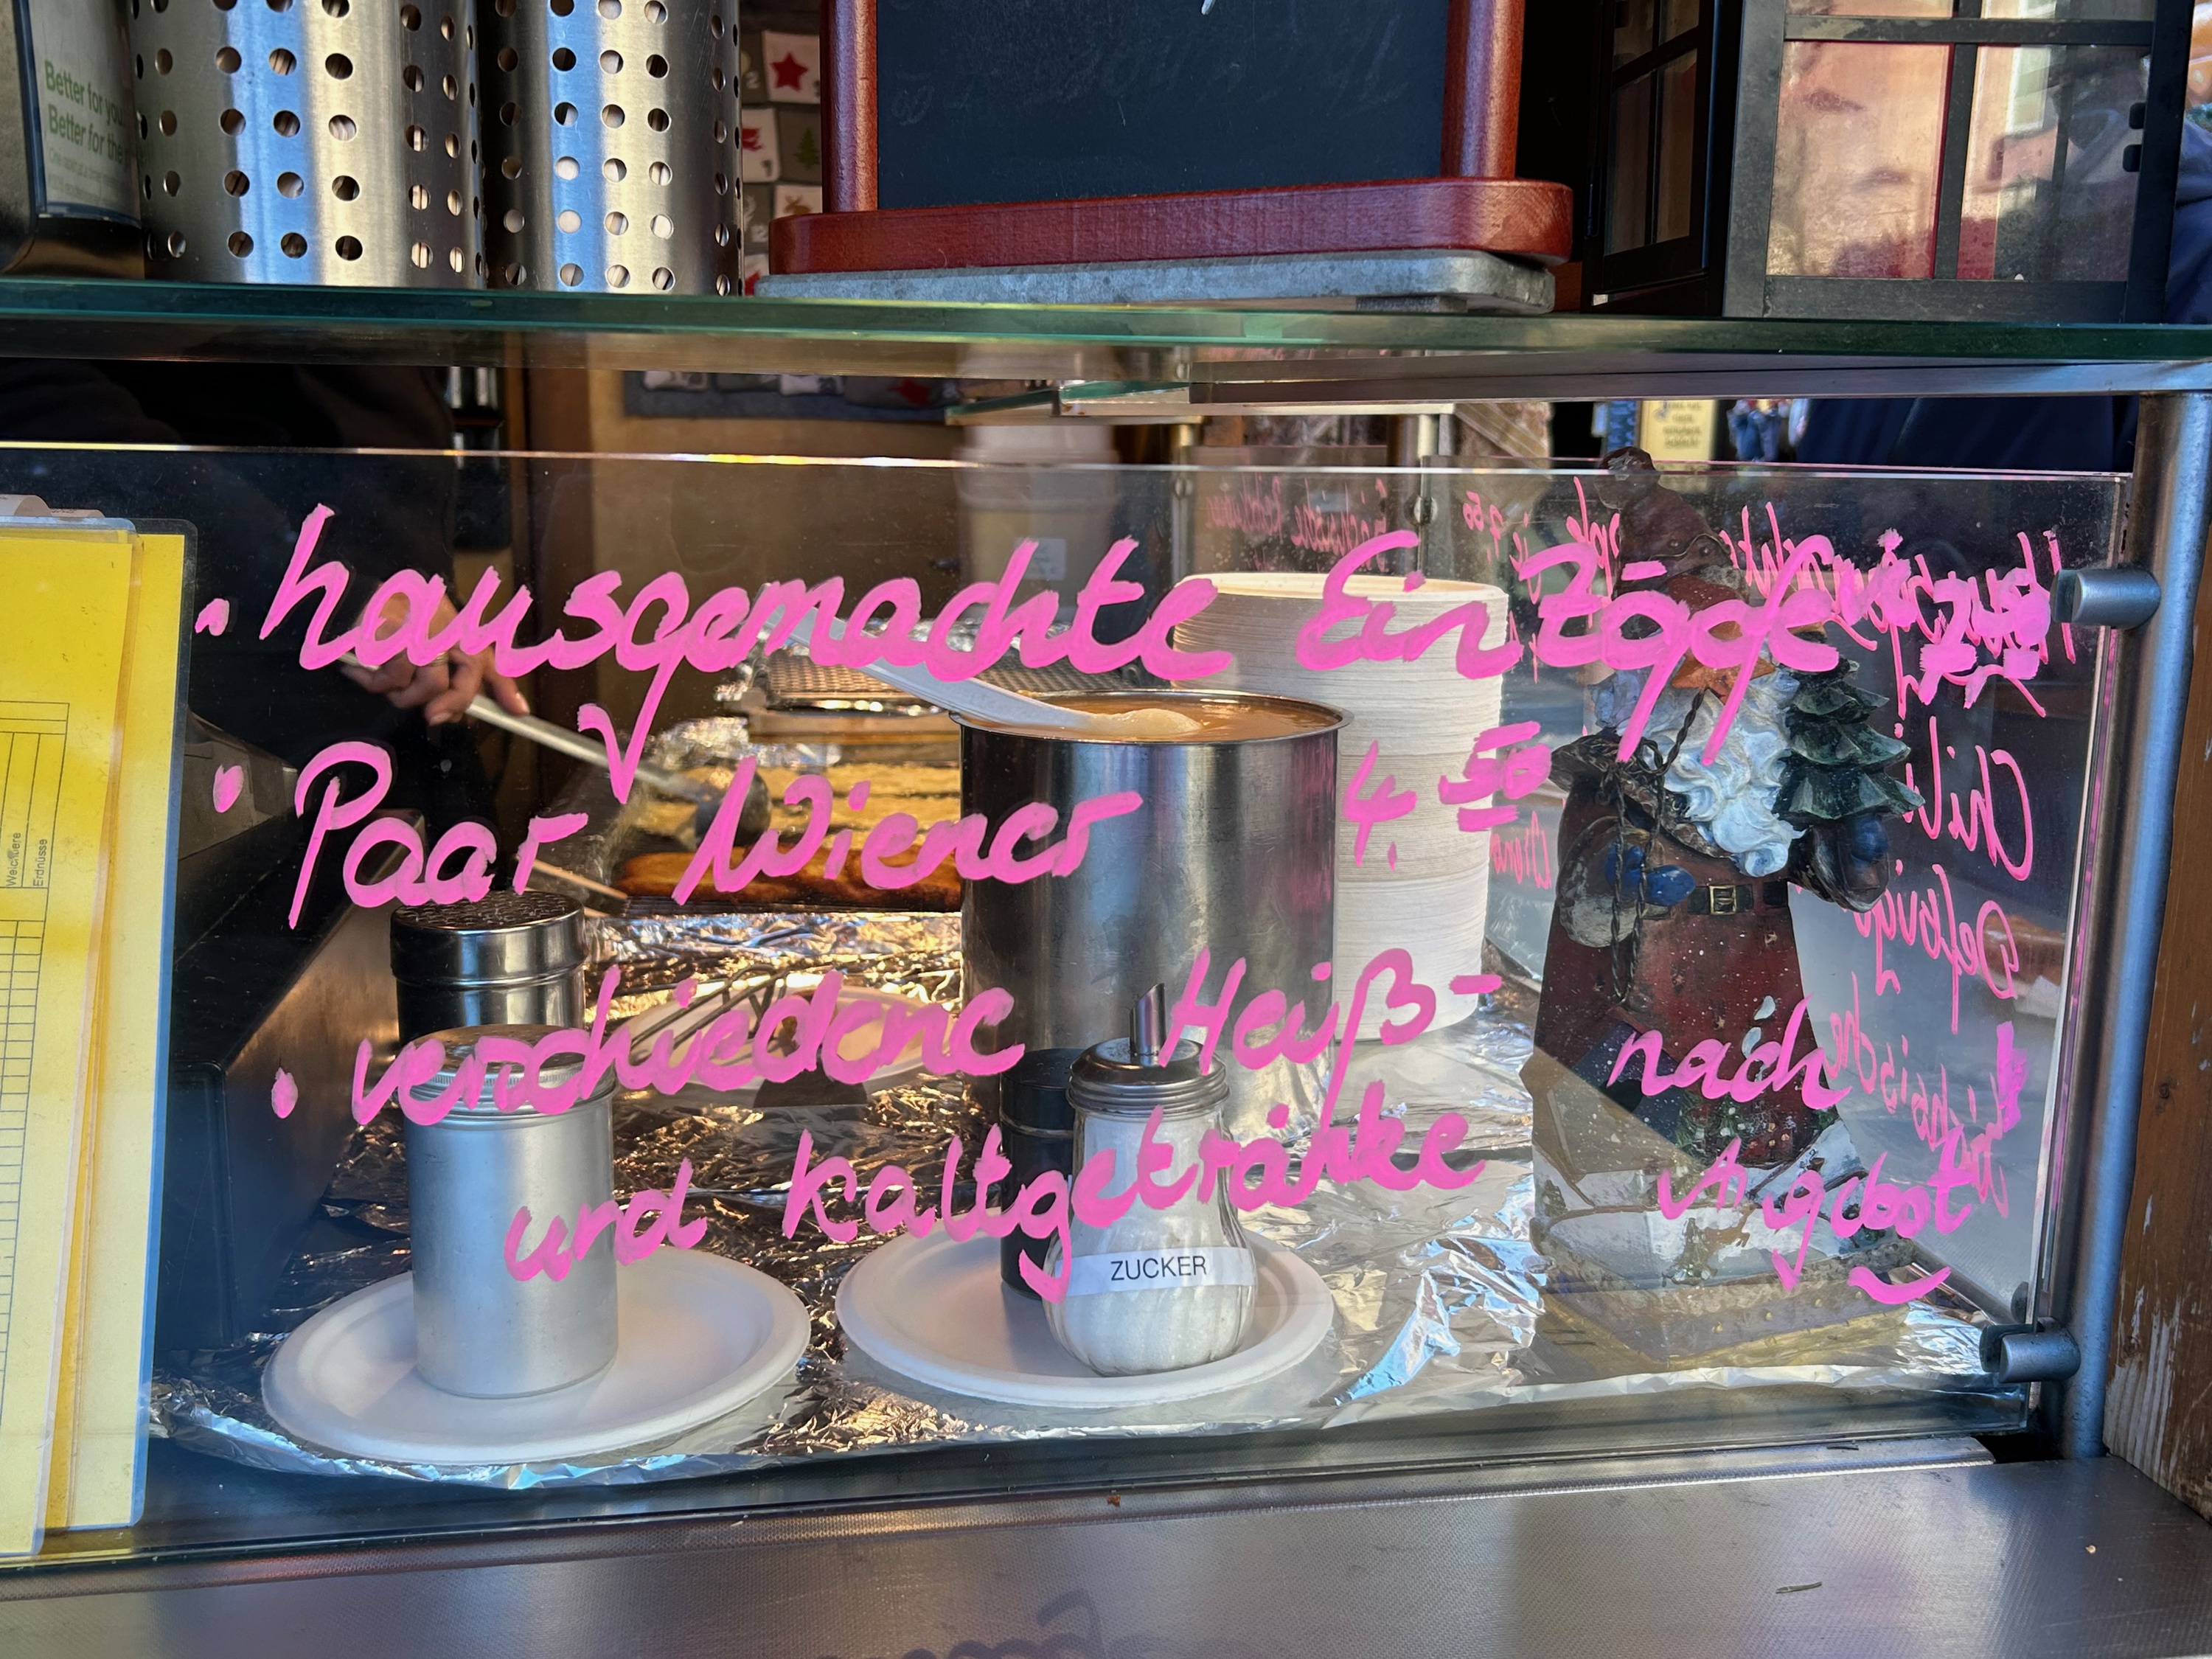 Better for you
Better for the
• hausgemachte Eintöpfe
• Paar Wiener 4,50
• verschiedene Heiß-
und Kaltgetränke
nach
Angebot
ZUCKER
Weichtiere
Erdnüsse
Chili